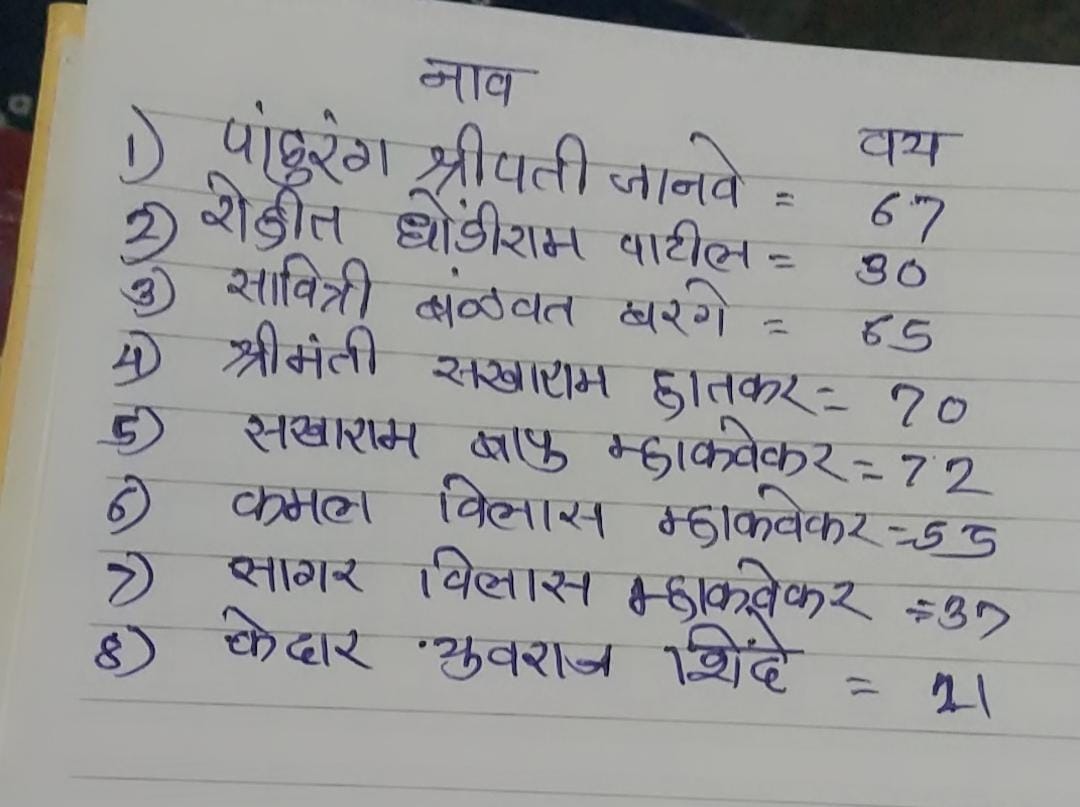 नाव
वय
1) पांडुरंग श्रीपती जानवे = 67
2) रोहीत धोंडीराम पाटील = 30
3) सावित्री बंळवत बरगे = 65
4) श्रीमंती सखाराम हातकर = 70
5) सखाराम बापु म्हाकवेकर = 72
6) कमल विलास म्हाकवेकर = 55
7) सागर विलास म्हाकवेकर = 37
8) केदार युवराज शिंदे = 21